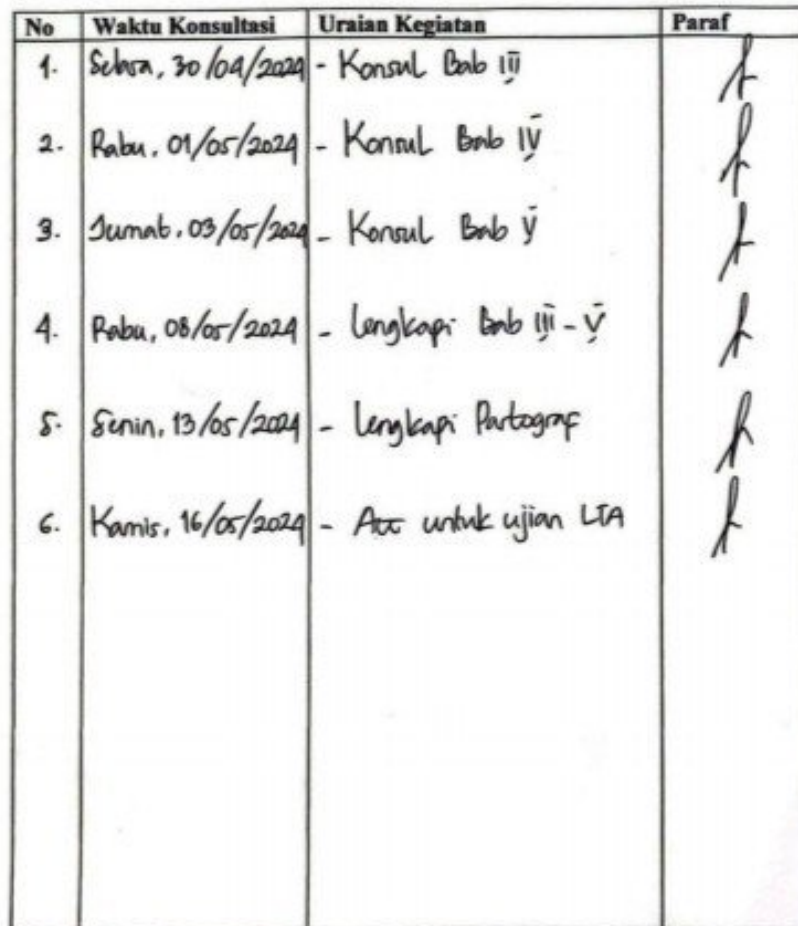 No Waktu Konsultasi Uraian Kegiatan Paraf
1. Selasa, 30/04/2024 - Konsul Bab III
2. Rabu, 01/05/2024 - Konsul Bab IV
3. Jumat, 03/05/2024 - Konsul Bab V
4. Rabu, 08/05/2024 - Lengkapi Bab III - V
5. Senin, 13/05/2024 - Lengkapi Partograf
6. Kamis, 16/05/2024 - Acc untuk ujian LTA